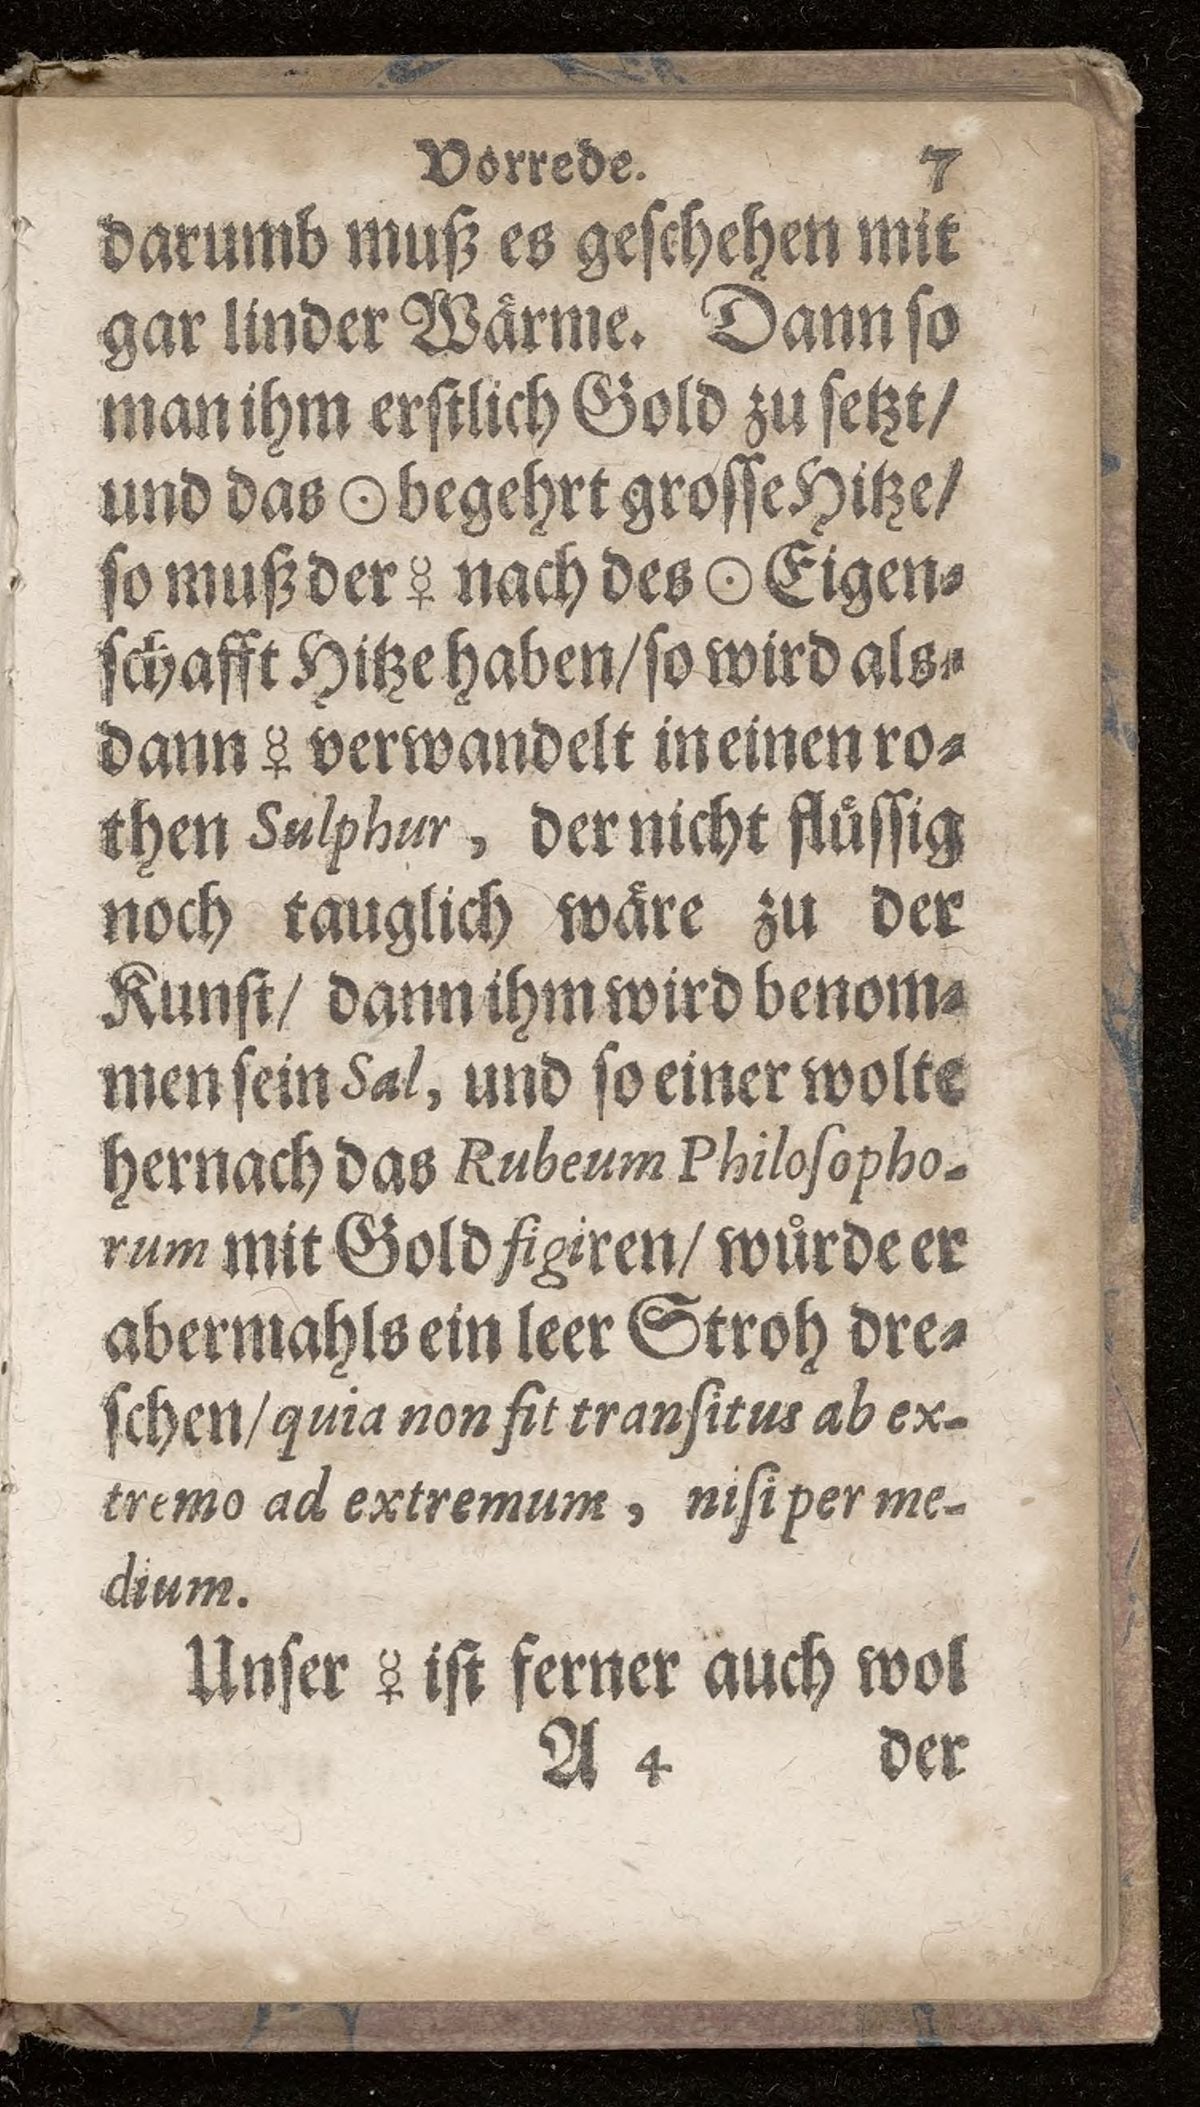 Vorrede. 7
darumb muß es geſchehen mit
gar linder Waͤrme. Dann ſo
man ihm erſtlich Gold zu ſetzt/
und das ☉ begehrt groſſe Hitze/
ſo muß der ☿ nach des ☉ Eigen⸗
ſchafft Hitze haben/ ſo wird als⸗
dann ☿ verwandelt in einen ro⸗
then Sulphur, der nicht fluͤſſig
noch tauglich waͤre zu der
Kunſt/ dann ihm wird benom⸗
men ſein Sal, und ſo einer wolte
hernach das Rubeum Philoſopho-
rum mit Gold figiren/ wuͤrde er
abermahls ein leer Stroh dre⸗
ſchen/ quia non fit tranſitus ab ex-
tremo ad extremum, niſi per me-
dium.
Unſer ☿ iſt ferner auch wol
A 4 der